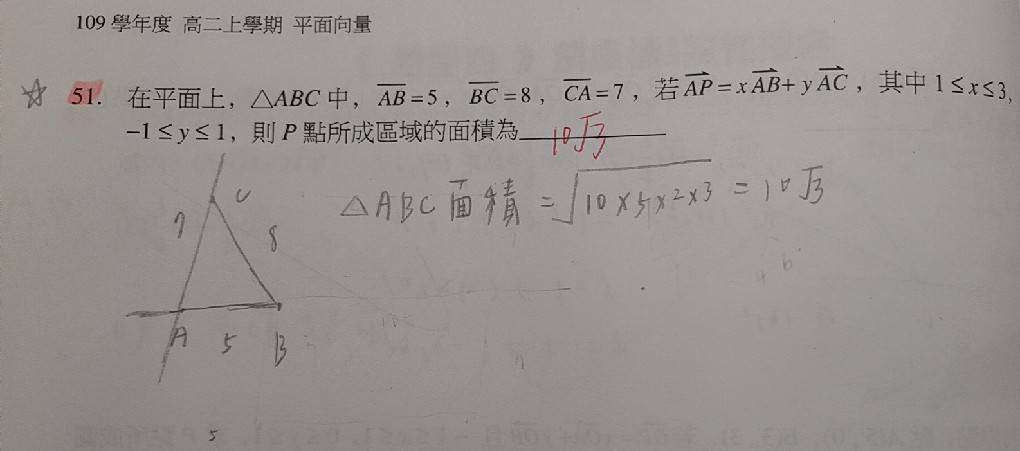 109 學年度 高二上學期 平面向量
☆ 51. 在平面上，△ABC 中，AB=5，BC=8，CA=7，若 AP=xAB+yAC，其中 1≤x≤3,
-1≤y≤1，則 P 點所成區域的面積為 10√3
△ABC 面積 = √10×5×2×3 = 10√3
C
7
8
A
5
B
5